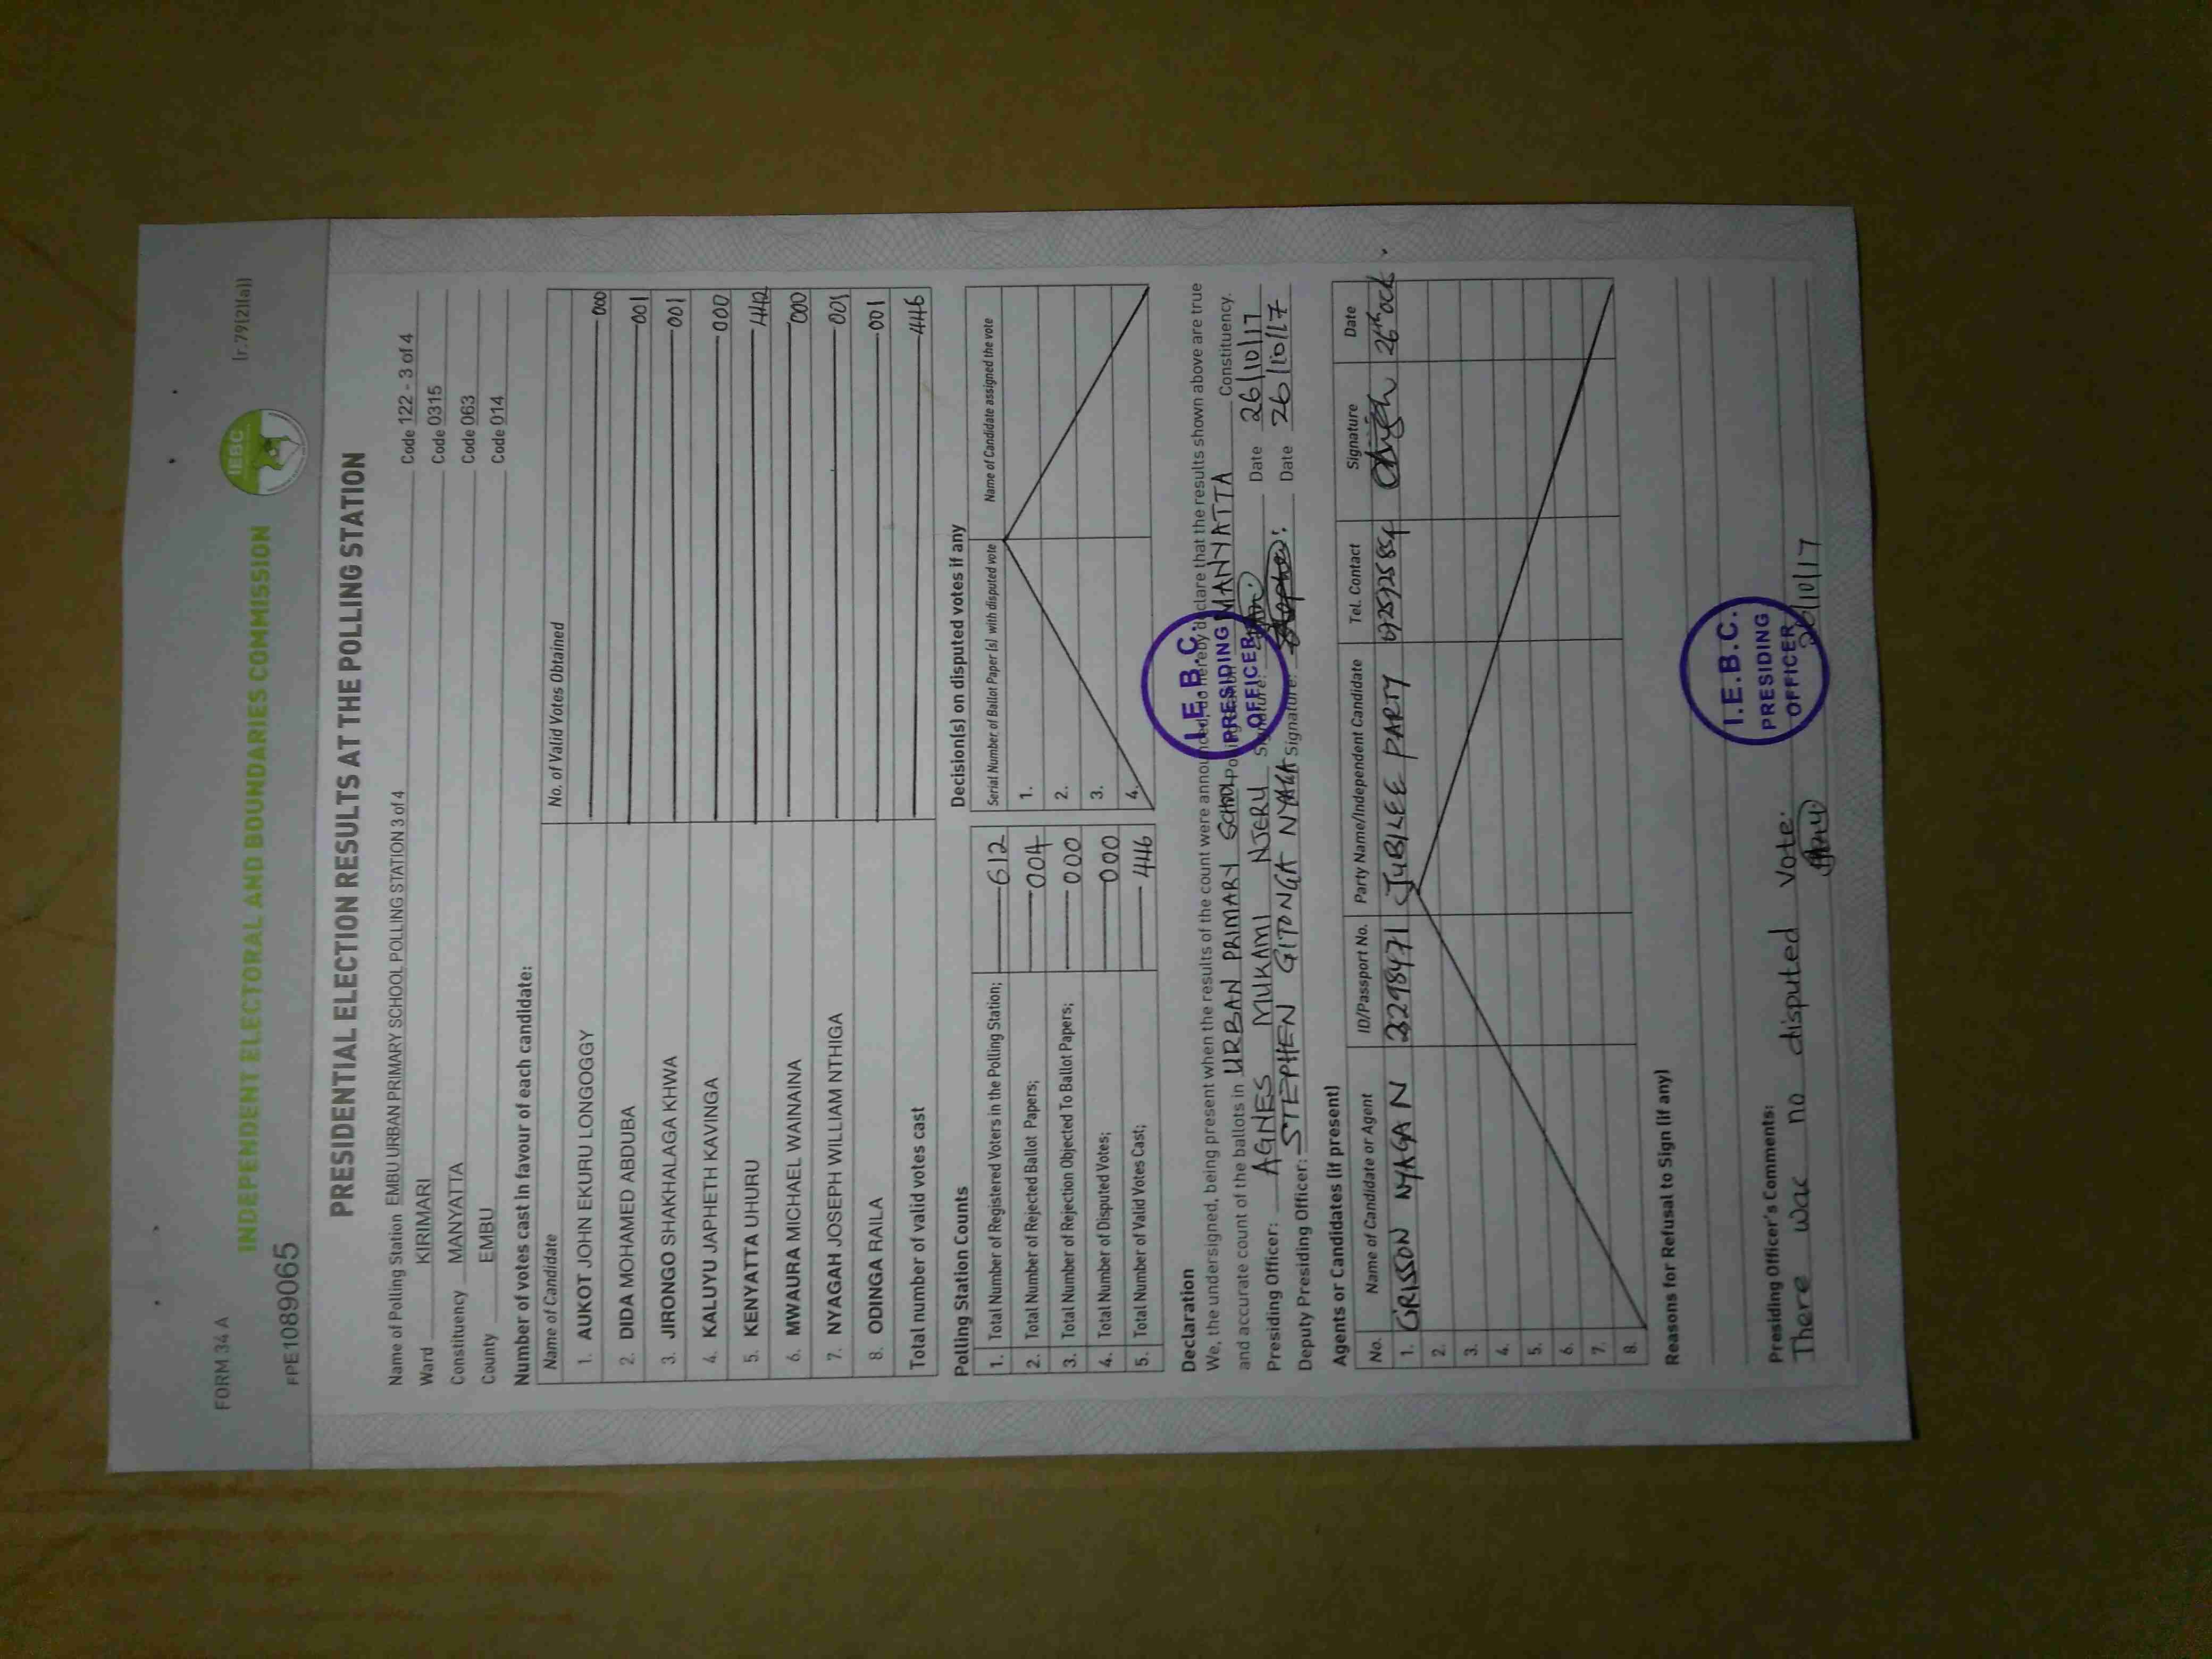 FORM 34 A
[r.79(2)(a)]
INDEPENDENT ELECTORAL AND BOUNDARIES COMMISSION
IEBC
FPE1089065
PRESIDENTIAL ELECTION RESULTS AT THE POLLING STATION
Name of Polling Station EMBU URBAN PRIMARY SCHOOL POLLING STATION 3 of 4 Code 122 - 3 of 4
Ward KIRIMARI Code 0315
Constituency MANYATTA Code 063
County EMBU Code 014
Number of votes cast in favour of each candidate:
Name of Candidate No. of Valid Votes Obtained
1. AUKOT JOHN EKURU LONGOGGY 000
2. DIDA MOHAMED ABDUBA 001
3. JIRONGO SHAKHALAGA KHWA 001
4. KALUYU JAPHETH KAVINGA 000
5. KENYATTA UHURU 442
6. MWAURA MICHAEL WAINAINA 000
7. NYAGAH JOSEPH WILLIAM NTHIGA 001
8. ODINGA RAILA 001
Total number of valid votes cast 446
Polling Station Counts
1. Total Number of Registered Voters in the Polling Station; 612
2. Total Number of Rejected Ballot Papers; 004
3. Total Number of Rejection Objected To Ballot Papers; 000
4. Total Number of Disputed Votes; 000
5. Total Number of Valid Votes Cast; 446
Decision(s) on disputed votes if any
Serial Number of Ballot Paper (s) with disputed vote Name of Candidate assigned the vote
1.
2.
3.
4.
Declaration
We, the undersigned, being present when the results of the count were announced, do hereby declare that the results shown above are true
and accurate count of the ballots in URBAN PRIMARY SCHOOL Polling MANYATTA Constituency.
Presiding Officer: AGNES MUKAMI NJERU Signature: Date 26/10/17
Deputy Presiding Officer: STEPHEN GITONGA NYAGA Signature: Date 26/10/17
I.E.B.C.
PRESIDING
OFFICER
Agents or Candidates (if present)
No. Name of Candidate or Agent ID/Passport No. Party Name/Independent Candidate Tel. Contact Signature Date
1. GRISSON NYAGA N 22298471 JUBILEE PARTY 26th oct.
2.
3.
4.
5.
6.
7.
8.
Reasons for Refusal to Sign (if any)
Presiding Officer's Comments:
There was no disputed Vote.
26/10/17
I.E.B.C.
PRESIDING
OFFICER